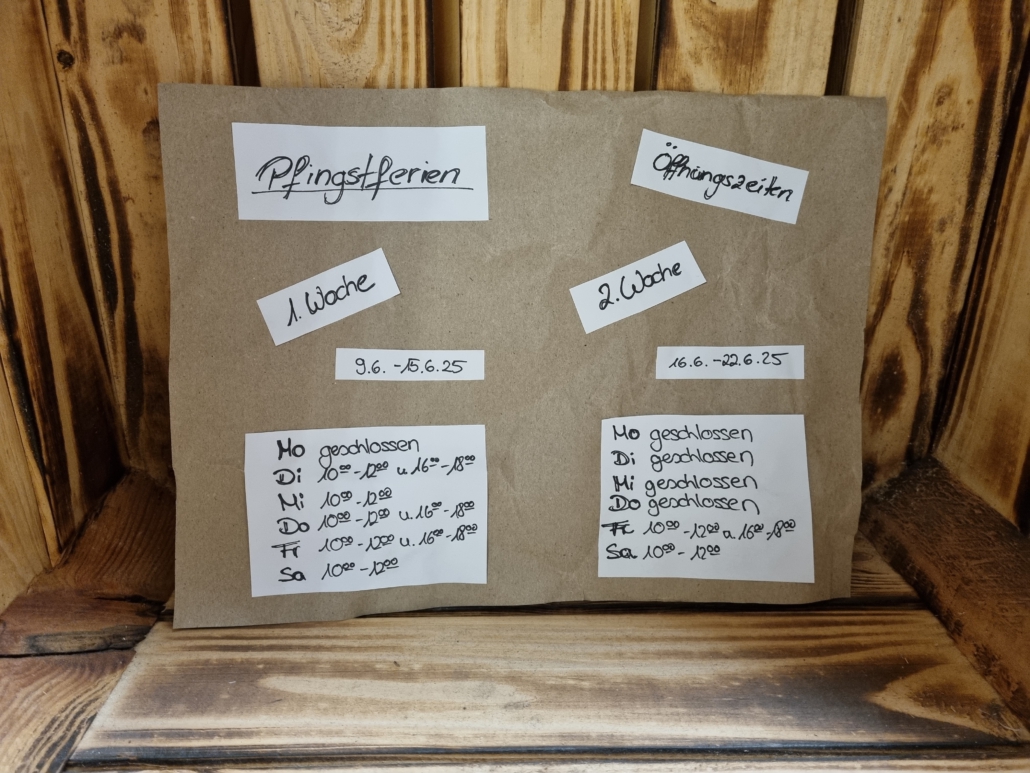 Pfingstferien
Öffnungszeiten
1. Woche
9.6. - 15.6.25
Mo geschlossen
Di 10⁰⁰ - 12⁰⁰ u. 16⁰⁰ - 18⁰⁰
Mi 10⁰⁰ - 12⁰⁰
Do 10⁰⁰ - 12⁰⁰ u. 16⁰⁰ - 18⁰⁰
Fr 10⁰⁰ - 12⁰⁰ u. 16⁰⁰ - 18⁰⁰
Sa 10⁰⁰ - 12⁰⁰
2. Woche
16.6. - 22.6.25
Mo geschlossen
Di geschlossen
Mi geschlossen
Do geschlossen
Fr 10⁰⁰ - 12⁰⁰ u. 16⁰⁰ - 18⁰⁰
Sa 10⁰⁰ - 12⁰⁰